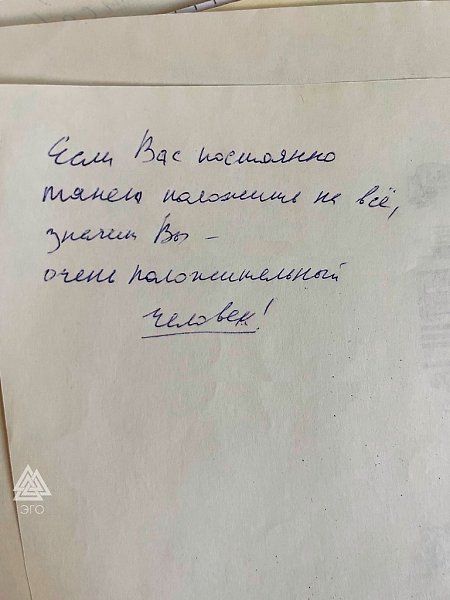 Если Вас постоянно
тянет положить на всё,
значит Вы –
очень положительный
человек!
ЭГО